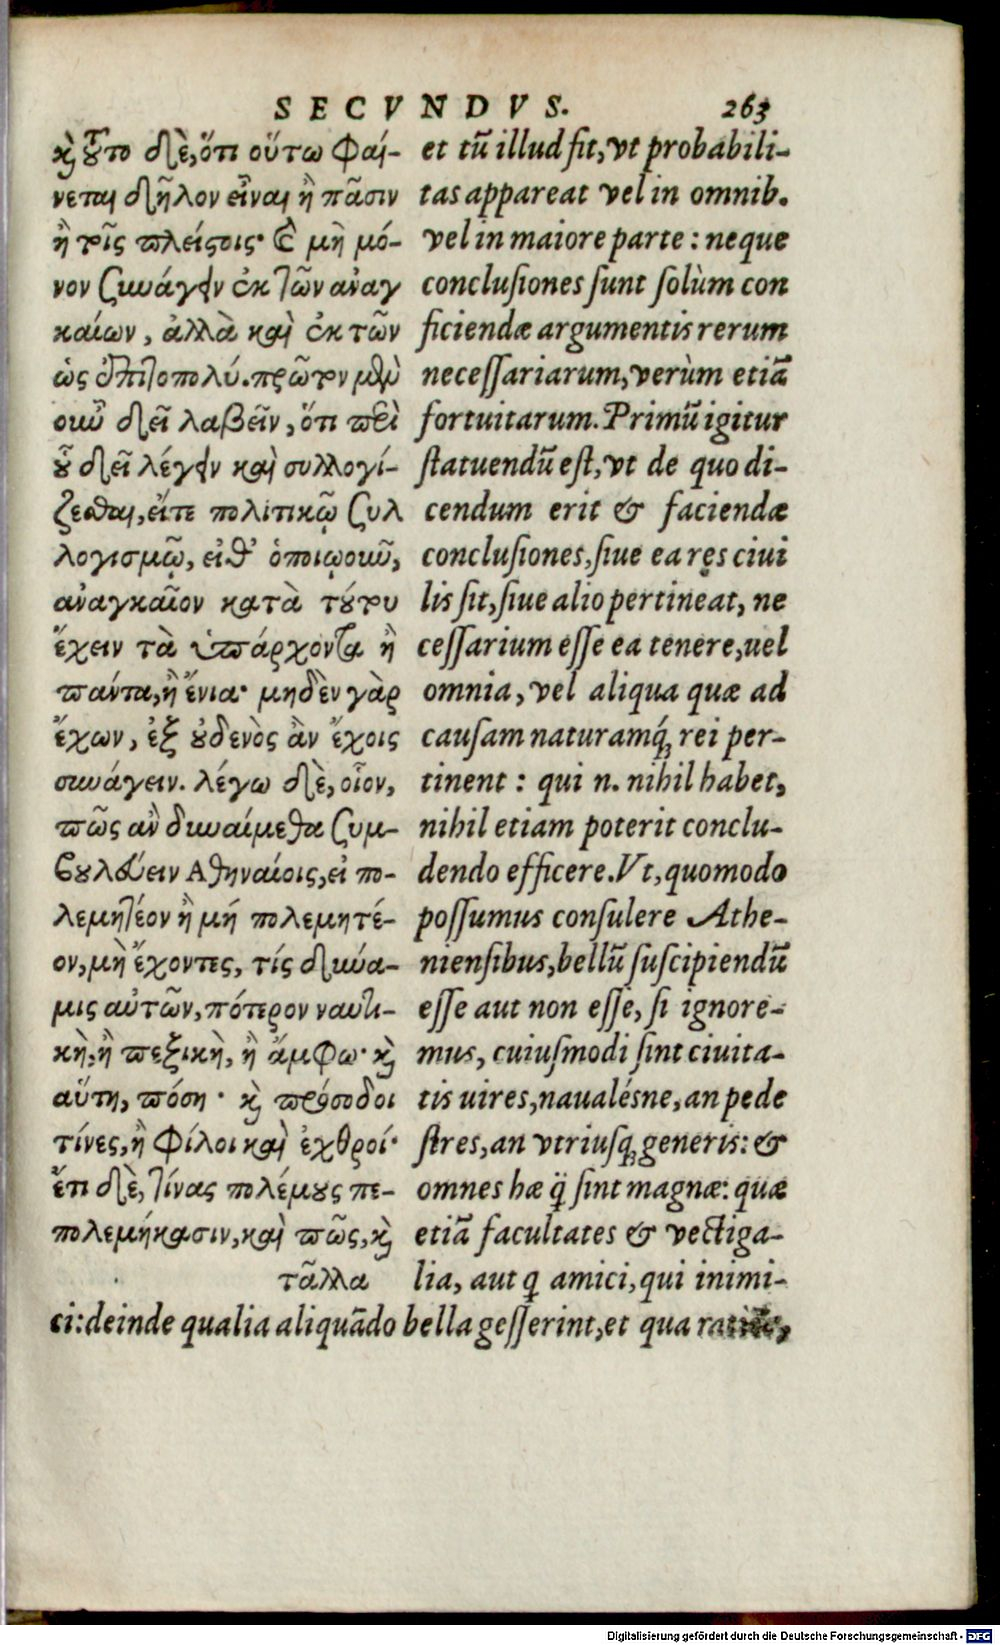 SECVNDVS. 263
κὶ τȣ͂το δὲ, ὅτι οὕτω φαί-
νεται δῆλον εἶναι ἢ πᾶσιν
ἢ τοῖς πλείστοις· καὶ μὴ μό-
νον συνάγειν ἐκ τῶν ἀναγ
καίων, ἀλλὰ καὶ ἐκ τῶν
ὡς ἐπιτοπολύ. πρῶτον μὲν
οὖν δεῖ λαβεῖν, ὅτι περὶ
ȣ̔͂ δεῖ λέγειν καὶ συλλογί-
ζεσθαι, εἴτε πολιτικῷ συλ
λογισμῷ, εἴθ᾽ ὁποιῳοῦν,
ἀναγκαῖον κατὰ τȣ́του
ἔχειν τὰ ὑπάρχοντα ἢ
πάντα, ἢ ἔνια· μηδὲν γὰρ
ἔχων, ἐξ ȣ̓δενὸς ἂν ἔχοις
συνάγειν. λέγω δὲ, οἷον,
πῶς ἂν δυναίμεθα συμ-
βȣλεύειν Αθηναίοις, εἰ πο-
λεμητέον ἢ μή πολεμητέ-
ον, μὴ ἔχοντες, τίς δύνα-
μις αὐτῶν, πότερον ναυτι-
κὴ, ἢ πεζικὴ, ἢ ἄμφω· κὶ
αὕτη, πόση· κὶ πρόσοδοι
τίνες, ἢ φίλοι καὶ ἐχθροί·
ἔτι δὲ, τίνας πολέμȣς πε-
πολεμήκασιν, καὶ πῶς, κὶ
τἆλλα
et tũ illud sit, vt probabili-
tas appareat vel in omnib.
vel in maiore parte: neque
conclusiones sunt solùm con
ficiendæ argumentis rerum
necessariarum, verùm etiã
fortuitarum. Primũ igitur
statuendũ est, vt de quo di-
cendum erit & faciendæ
conclusiones, siue ea ręs ciui
lis sit, siue alio pertineat, ne
cessarium esse ea tenere, uel
omnia, vel aliqua quæ ad
causam naturamq́; rei per-
tinent: qui n. nihil habet,
nihil etiam poterit conclu-
dendo efficere. Vt, quomodo
possumus consulere Athe-
niensibus, bellũ suscipiendũ
esse aut non esse, si ignore-
mus, cuiusmodi sint ciuita-
tis uires, naualésne, an pede
stres, an vtriusq; generis: &
omnes hæ q̈̃ sint magnæ: quæ
etiã facultates & vectiga-
lia, aut q amici, qui inimi-
ci: deinde qualia aliquãdo bella gesserint, et qua
Digitalisierung gefördert durch die Deutsche Forschungsgemeinschaft - DFG